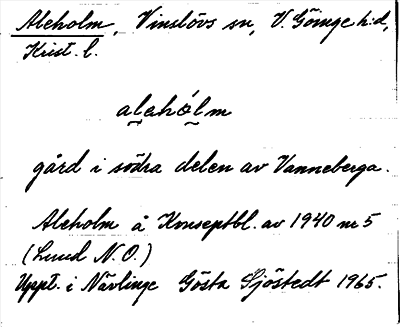 Aleholm, Vinslövs sn, V. Göinge h:d,
Krist. l.
alehólm
gård i södra delen av Vanneberga.
Aleholm å Konseptbl. av 1940 nr 5
(Lund N.O.)
Uppt. i Nävlinge Gösta Sjöstedt 1965.